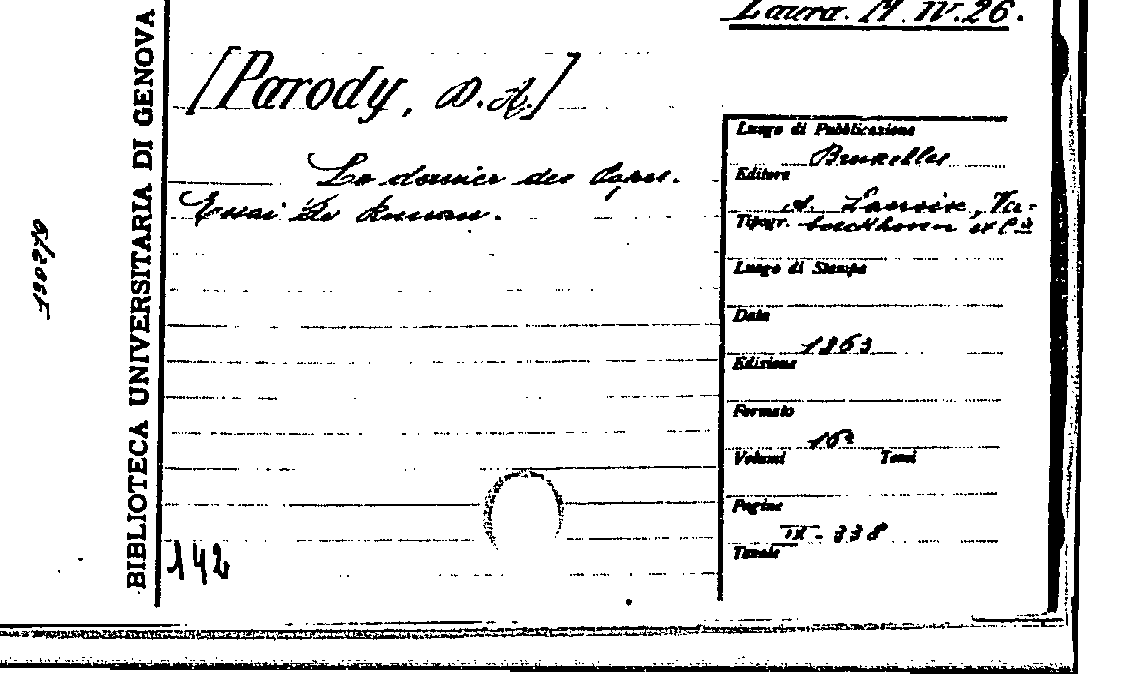 Laura. M. IV. 26.
BIBLIOTECA UNIVERSITARIA DI GENOVA
[Parody, D. A.]
Le dernier des Papes.
Essai de Roman.
Luogo di Pubblicazione
Bruxelles
Editore
A. Lacroix, Ver-
Tipogr. boeckhoven et C.ie
Luogo di Stampa
Data
1863
Edizione
Formato
16º
Volumi Tomi
Pagine
IX - 338
Tavole
142